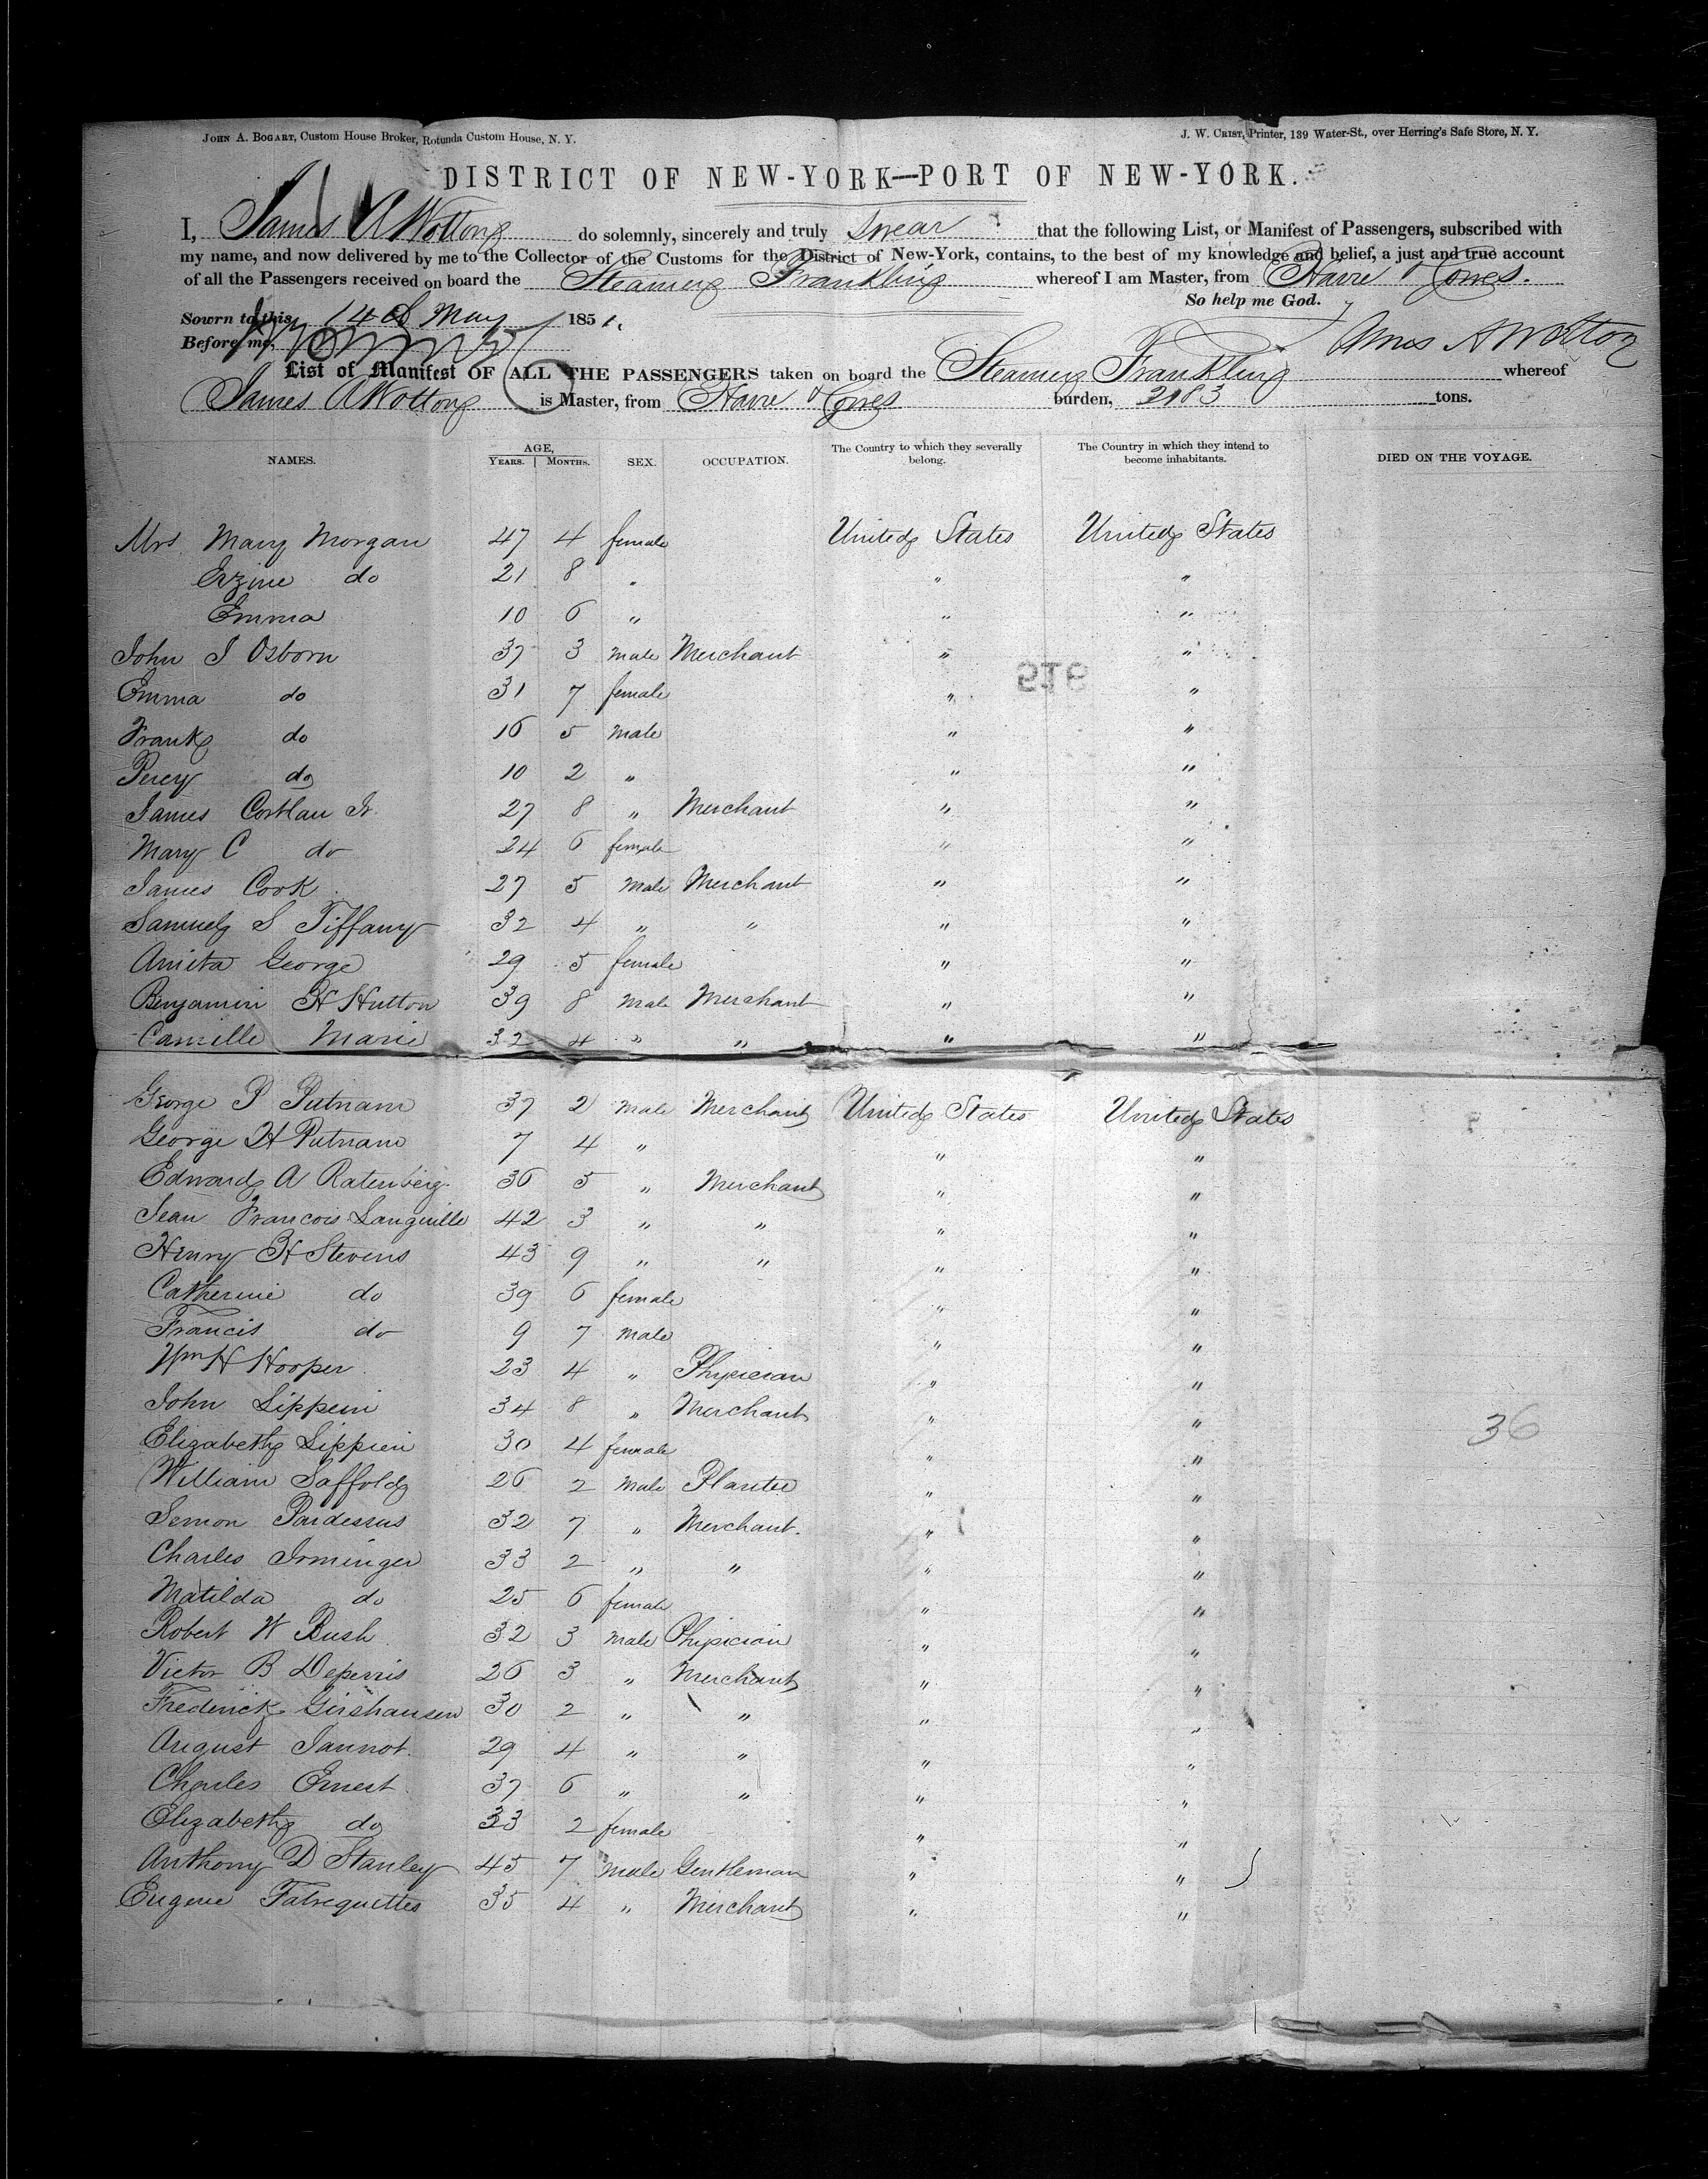 JOHN A. BOGART, Custom House Broker, Rotunda Custom House, N. Y.
J. W. CRIST, Printer, 139 Water-St., over Herring's Safe Store, N. Y.
DISTRICT OF NEW-YORK—PORT OF NEW-YORK.
I, James A Wotton do solemnly, sincerely and truly swear that the following List, or Manifest of Passengers, subscribed with
my name, and now delivered by me to the Collector of the Customs for the District of New-York, contains, to the best of my knowledge and belief, a just and true account
of all the Passengers received on board the Steamer Franklin whereof I am Master, from Havre & Cowes.
So help me God.
Sowrn to this 14 May 1851.
Before me,
James A Wotton
List of Manifest OF ALL THE PASSENGERS taken on board the Steamer Franklin whereof
James A Wotton is Master, from Havre & Cowes burden, 2183 tons.
NAMES. AGE, YEARS. MONTHS. SEX. OCCUPATION. The Country to which they severally belong. The Country in which they intend to become inhabitants. DIED ON THE VOYAGE.
Mrs Mary Morgan 47 4 female United States United States
do 21 8 " " "
Emma 10 6 " " "
John J Osborn 37 3 male Merchant " "
Emma do 31 7 female " "
Frank do 16 5 male " "
Percy do 10 2 " " "
James Jr 27 8 " Merchant " "
Mary C do 24 6 female " "
James Cook 27 5 male Merchant " "
Samuel S Tiffany 32 4 " " " "
Anita George 29 5 female " "
Benjamin H Hutton 39 8 male Merchant " "
Camille Marie 32 4 " " " "
George P Putnam 37 2 male Merchant United States United States
George H Putnam 7 4 " " "
Edward A 36 5 " Merchant " "
Jean Francois 42 3 " " " "
Henry H Stevens 43 9 " " " "
Catherine do 39 6 female " "
Francis do 9 7 male " "
Wm H Hooper 23 4 " Physician " "
John 34 8 " Merchant " "
36
Elizabeth 30 4 female " "
William Saffold 26 2 male Planter " "
Simon Pardessus 32 7 " Merchant. " "
Charles Irminger 33 2 " " " "
Matilda do 25 6 female " "
Robert W Bush 32 3 male Physician " "
Victor B 26 3 " Merchant " "
Frederick 30 2 " " " "
August Jannot 29 4 " " " "
Charles Ernest 37 6 " " " "
Elizabeth do 33 2 female " "
Anthony D Stanley 45 7 male Gentleman " "
Eugene 35 4 " Merchant " "